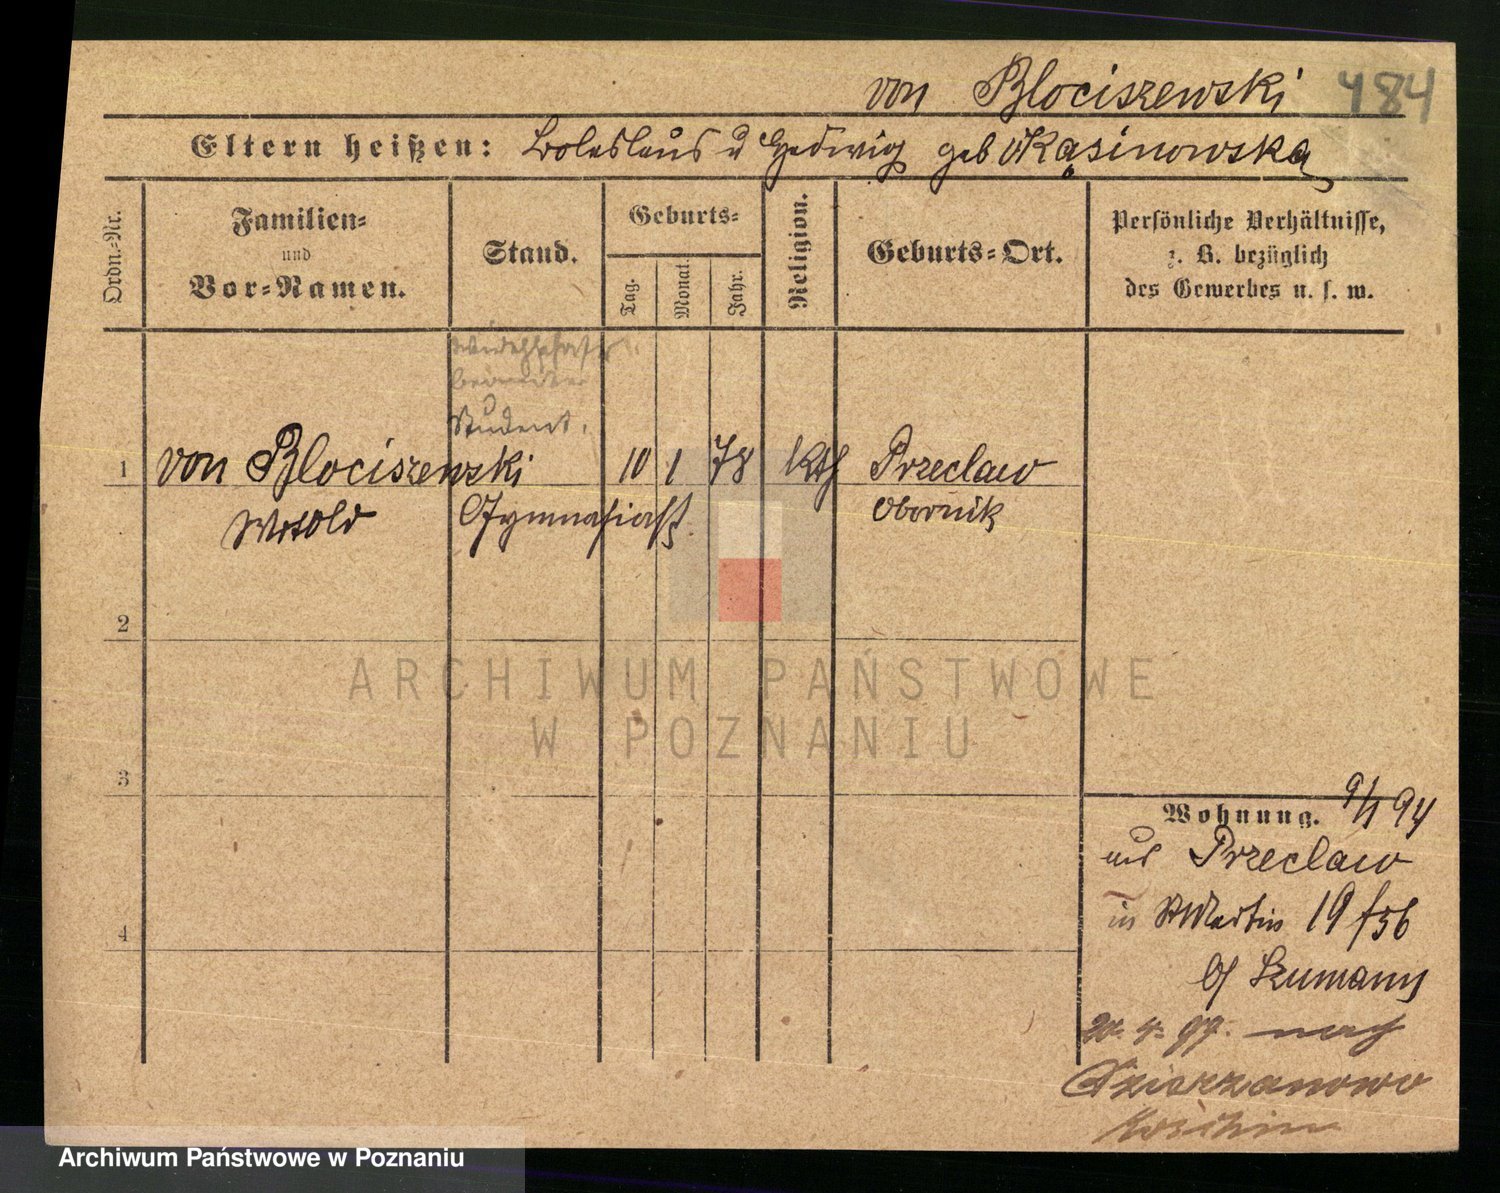 von Blociszewski 484
Eltern heißen: Boleslaus u Hedwig geb Kąsinowska
Ordn.=Nr.
Familien=
und
Vor=Namen.
Stand.
Geburts=
Tag.
Monat.
Jahr.
Religion.
Geburts=Ort.
Persönliche Verhältnisse,
z. B. bezüglich
des Gewerbes u. s. w.
Student.
1 von Blociszewski 10 1 78 kth Przeclaw
Witold Gymnasiast. Obornik
2
3
4
Wohnung. 9/1 94
aus Przeclaw
in St Martin 19 f 56
b/ Szumann
4. 97. nach
ARCHIWUM PAŃSTWOWE
W POZNANIU
Archiwum Państwowe w Poznaniu